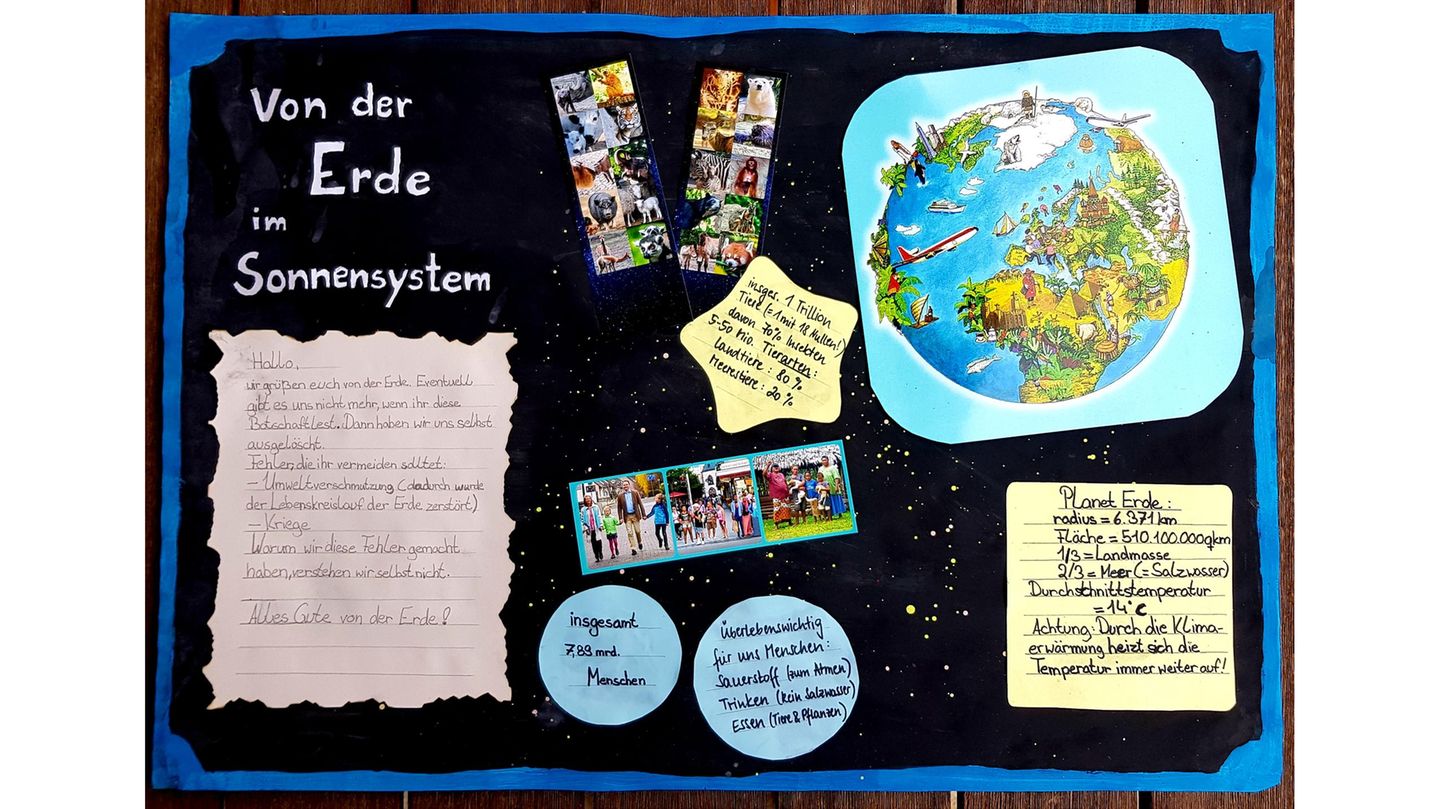 Von der
Erde
im
Sonnensystem
Hallo,
wir grüßen euch von der Erde. Eventuell
gibt es uns nicht mehr, wenn ihr diese
Botschaft lest. Dann haben wir uns selbst
ausgelöscht.
Fehler, die ihr vermeiden solltet:
- Umweltverschmutzung (dadurch wurde
der Lebenskreislauf der Erde zerstört)
- Kriege
Warum wir diese Fehler gemacht
haben, verstehen wir selbst nicht.
Alles Gute von der Erde!
insges. 1 Trillion
Tiere (= 1 mit 18 Nullen!)
davon 70% Insekten
5-50 Mio. Tierarten:
Landtiere: 80%
Meerestiere: 20%
insgesamt
7,89 mrd.
Menschen
Überlebenswichtig
für uns Menschen:
Sauerstoff (zum Atmen)
Trinken (kein Salzwasser)
Essen (Tiere & Pflanzen)
Planet Erde:
radius = 6.371 km
Fläche = 510.100.000qkm
1/3 = Landmasse
2/3 = Meer (= Salzwasser)
Durchschnittstemperatur
= 14°C
Achtung: Durch die Klima-
erwärmung heizt sich die
Temperatur immer weiter auf!